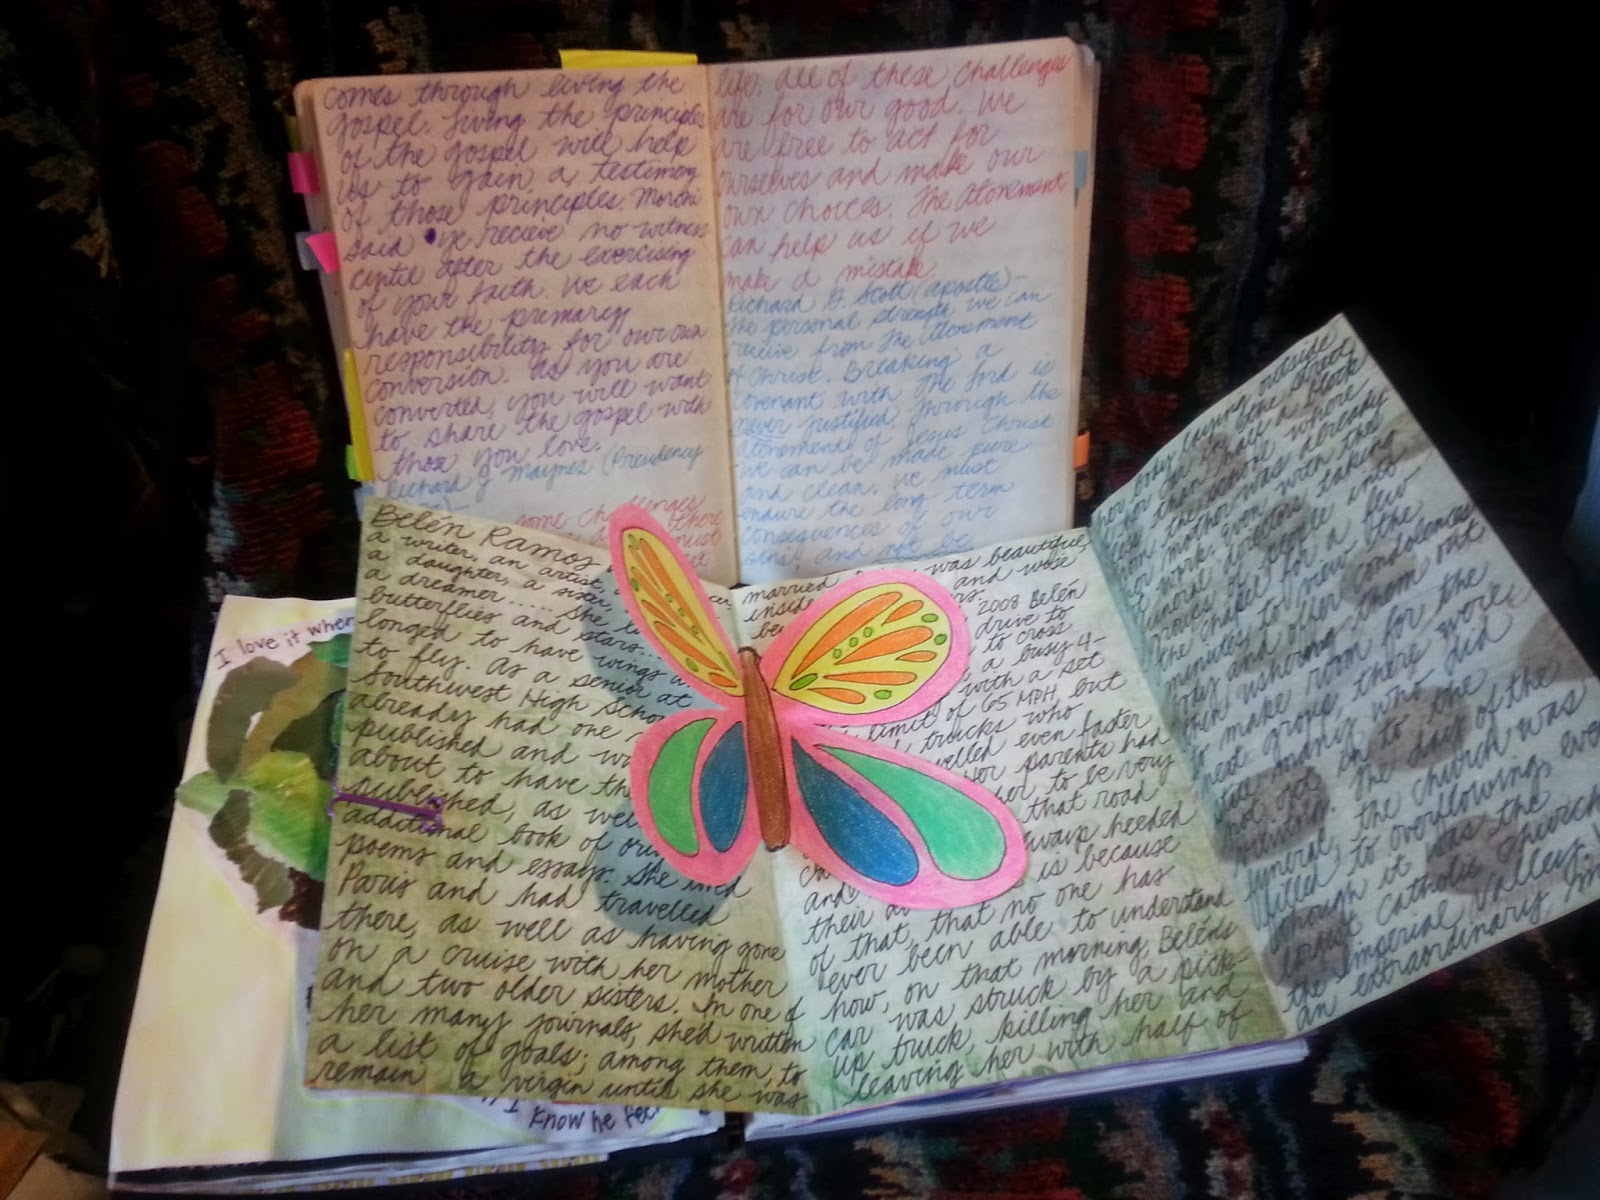 comes through living the
gospel. Living the principles
of the gospel will help
us to gain a testimony
of those principles. Moroni
said "ye recieve no witness
until after the exercising
of your faith. We each
have the primary
responsibility for our own
conversion. As you are
converted, you will want
to share the gospel with
those you love.
Richard J. Maynes (Presidency
some challenges
those
must
life. All of these challenges
are for our good. We
are free to act for
ourselves and make our
own choices. The Atonement
can help us if we
make a mistake.
Richard G. Scott (apostle) -
The personal strength we can
receive from The Atonement
of Christ. Breaking a
covenant with The Lord is
never justified. Through the
atonement of Jesus Christ
we can be made pure
and clean. We must
ensure the long term
consequences of our
sins, and not be
I love it when
know he
Belén Ramos
a writer, an artist
a daughter, a sister,
a dreamer..... She
butterflies and stars...
longed to have wings
to fly. As a senior at
Southwest High School
already had one
published and
about to have
published, as well
additional book of
poems and essays. She
Paris and had travelled
there, as well as having gone
on a cruise with her mother
and two older sisters. In one of
her many journals, she'd written
a list of goals; among them, to
remain a virgin until she was
married
was beautiful,
inside
and
2008 Belén
drive to
to cross
a busy 4-
with a set
limit of 65 MPH, but
trucks who
even faster
Her parents had
her to be very
that road
always heeded
and
their
is because
of that, that no one has
ever been able to understand
how, on that morning, Belén's
car was struck by a pick-
up truck, killing her and
leaving her with half of
her body laying outside
the street
than a block
from the school where
her mother was already
at work. Even with the
funeral directors taking
groups of people into
the chapel for a few
minutes to view the
body and offer condolences
then ushering them out
to make room for the
next group, there were
still many who did
not get in to the
viewing. The day of the
funeral, the church was
filled to overflowing, even
though it was the
largest Catholic church in
the Imperial Valley.
an extraordinary